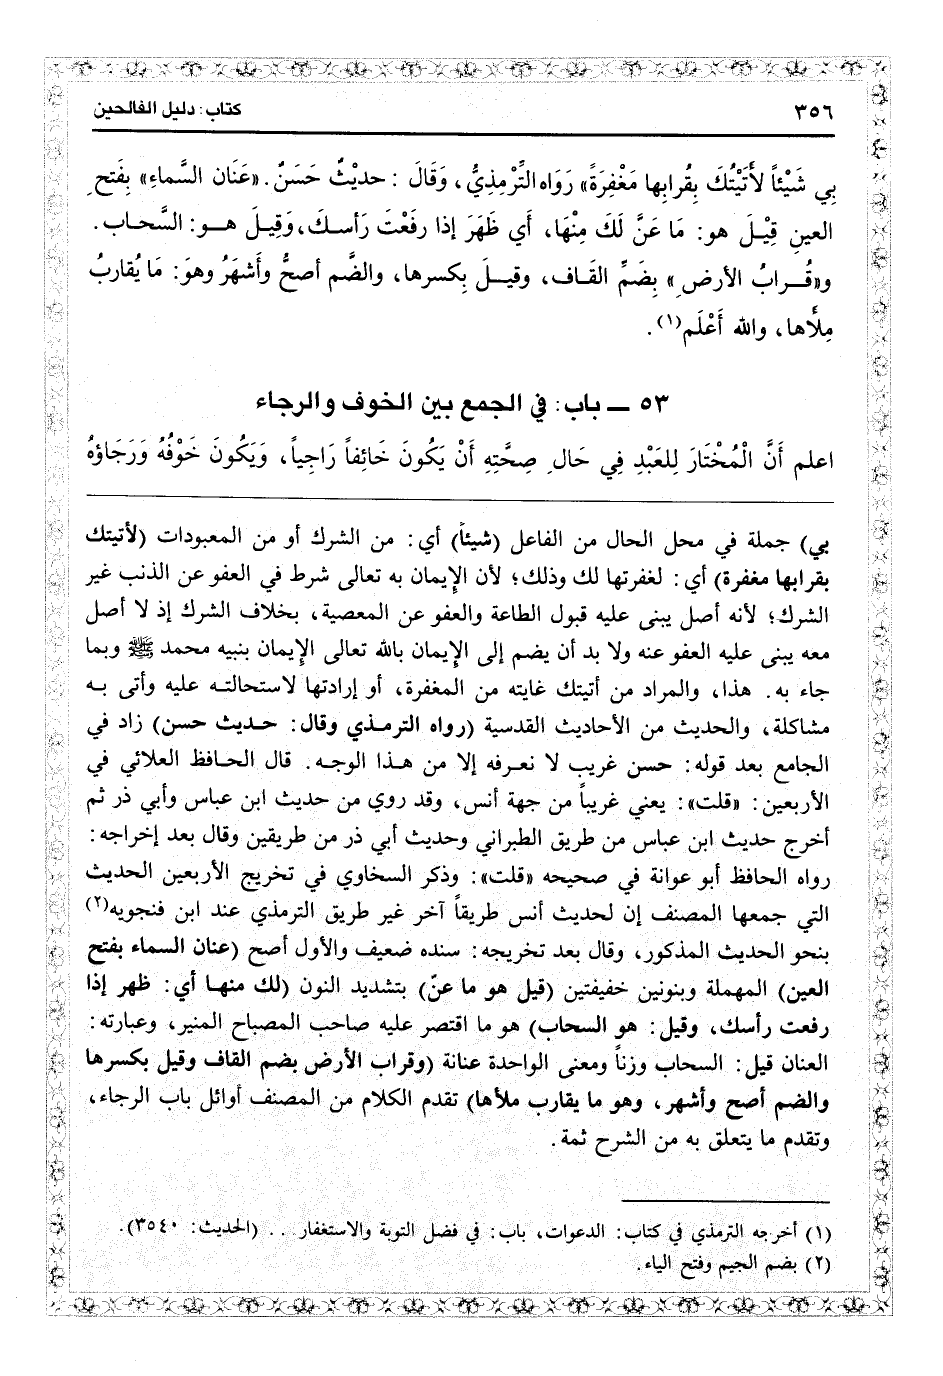 ٣٥٦ كتاب: دليل الفالحين
بِي شَيْئاً لأَتَيْتُكَ بِقُرابِها مَغْفِرَةً» رَوَاه التِّرْمِذِيُّ، وَقَالَ: حديثٌ حَسَنٌ. «عَنَان السَّماءِ» بِفَتحِ
العينِ قِيْلَ هو: مَا عَنَّ لَكَ مِنْهَا، أَي ظَهَرَ إذا رفَعْتَ رَأسكَ، وَقِيلَ هـو: السَّحاب.
و«قُـرابُ الأرضِ» بِضَمِّ القَاف، وقيـلَ بِكسرها، والضَّم أصحُّ وأَشهَرُ وهوَ: مَا يُقاربُ
مِلأَها، والله أَعْلَم(١).
٥٣ ــ باب: في الجمع بين الخوف والرجاء
اعلم أَنَّ الْمُخْتَارَ لِلعَبْدِ فِي حَالِ صِحَّتِهِ أَنْ يَكُونَ خَائِفاً رَاجِياً، وَيَكُونَ خَوْفُهُ وَرَجَاؤهُ
بي) جملة في محل الحال من الفاعل (شيئاً) أي: من الشرك أو من المعبودات (لأتيتك
بقرابها مغفرة) أي: لغفرتها لك وذلك؛ لأن الإيمان به تعالى شرط في العفو عن الذنب غير
الشرك؛ لأنه أصل يبنى عليه قبول الطاعة والعفو عن المعصية، بخلاف الشرك إذ لا أصل
معه يبنى عليه العفو عنه ولا بد أن يضم إلى الإيمان بالله تعالى الإيمان بنبيه محمد ﷺ وبما
جاء به. هذا، والمراد من أتيتك غايته من المغفرة، أو إرادتها لاستحالتـه عليه وأتى بـه
مشاكلة، والحديث من الأحاديث القدسية (رواه الترمـذي وقال: حـديث حسن) زاد في
الجامع بعد قوله: حسن غريب لا نعـرفه إلا من هـذا الوجـه. قال الحـافظ العلائي في
الأربعين: «قلت»: يعني غريباً من جهة أنس، وقد روي من حديث ابن عباس وأبي ذر ثم
أخرج حديث ابن عباس من طريق الطبراني وحديث أبي ذر من طريقين وقال بعد إخراجه:
رواه الحافظ أبو عوانة في صحيحه «قلت»: وذكر السخاوي في تخريج الأربعين الحديث
التي جمعها المصنف إن لحديث أنس طريقاً آخر غير طريق الترمذي عند ابن فنجويه(٢)
بنحو الحديث المذكور، وقال بعد تخريجه: سنده ضعيف والأول أصح (عنان السماء بفتح
العين) المهملة وبنونين خفيفتين (قيل هو ما عنّ) بتشديد النون (لك منهـا أي: ظهر إذا
رفعت رأسك، وقيل: هو السحاب) هو ما اقتصر عليه صاحب المصباح المنير، وعبارته:
العنان قيل: السحاب وزناً ومعنى الواحدة عنانة (وقراب الأرض بضم القاف وقيل بكسرها
والضم أصح وأشهر، وهو ما يقارب ملأها) تقدم الكلام من المصنف أوائل باب الرجاء،
وتقدم ما يتعلق به من الشرح ثمة.
(١) أخرجه الترمذي في كتاب: الدعوات، باب: في فضل التوبة والاستغفار . . (الحديث: ٣٥٤٠).
(٢) بضم الجيم وفتح الياء.